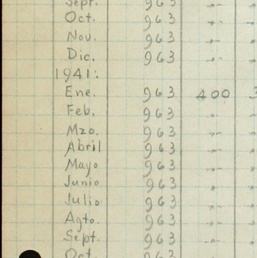 Sept. 963 -"-
Oct. 963 -"-
Nov. 963 -"-
Dic. 963 -"-
1941:
Ene. 963 400 3
Feb. 963 -"-
Mzo. 963 -"-
Abril 963 -"-
Mayo 963 -"-
Junio 963 -"-
Julio 963 -"-
Agto. 963 -"-
Sept. 963 -"-
Oct. 963